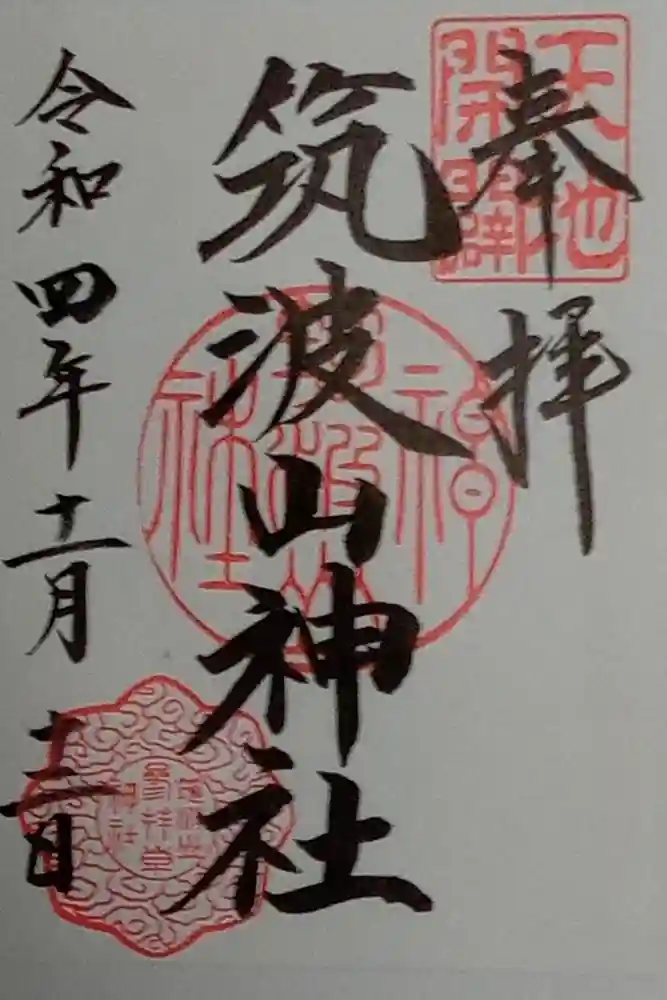 奉拝
天地
開闢
筑波山神社
筑波山
神社
令和四年十一月十二日